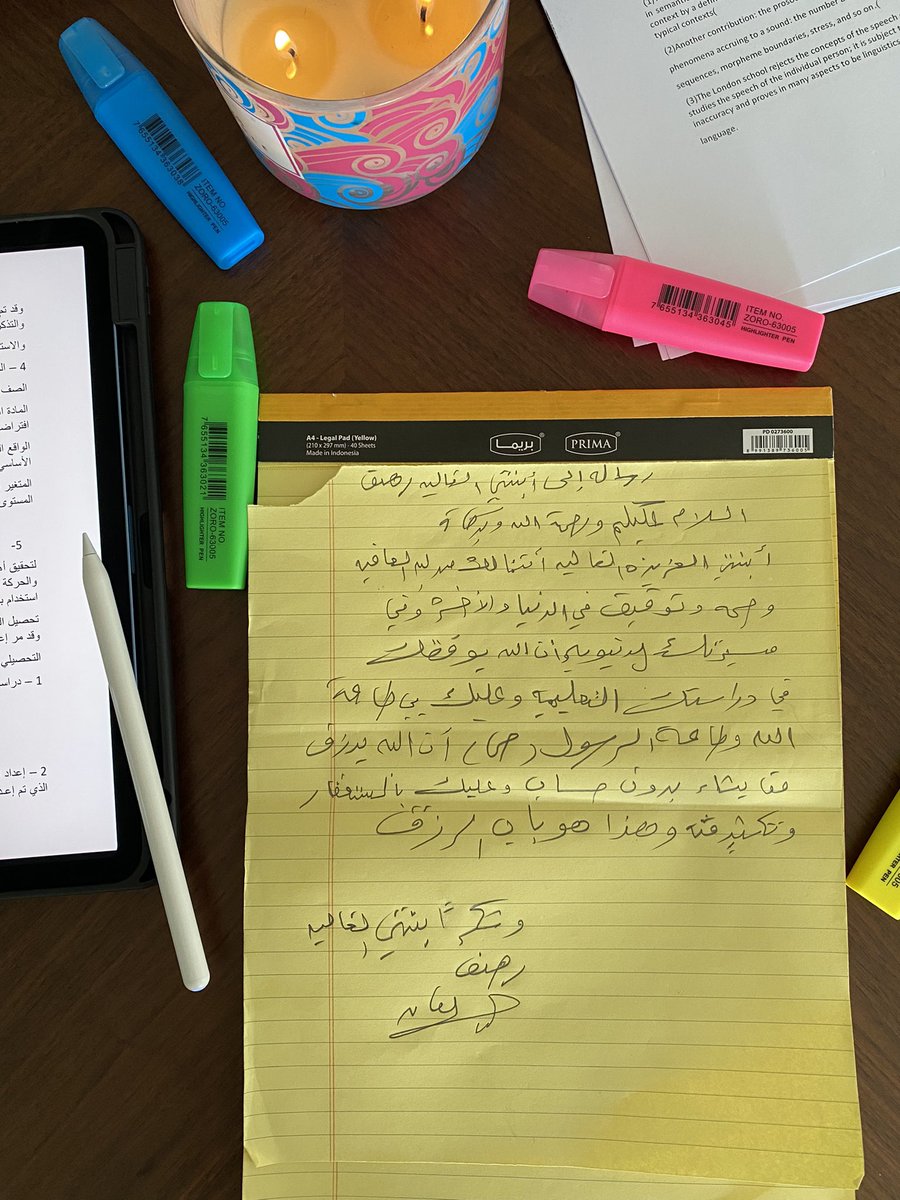 (1)
in semant
context by a defi
typical contexts(
(2)Another contribution: the proso
phenomena accruing to a sound: the number
sequences, morpheme boundaries, stress, and so on.(
(3)The London school rejects the concepts of the speech
studies the speech of the individual person; it is subject t
inaccuracy and proves in many aspects to be linguistics
language.
7 655134 363038
ITEM NO.
ZORO-63005
HIGHLIGHTER PEN
7 655134 363045
ITEM NO.
ZORO-63005
HIGHLIGHTER PEN
7 655134 363021
ITEM NO.
ZORO-63005
HIGHLIGHTER PEN
وقد
والتذكر
والاست
4 – ال
الصف
المادة ا
افتراضـ
الواقع ا
الأساسي
المتغير
المستوى
5-
لتحقيق أ
والحركة
استخدام ب
تحصيل ال
وقد مر إع
التحصيلي
1 – دراسـ
2 – إعداد
الذي تم إعد
A4 - Legal Pad (Yellow)
(210 x 297 mm) - 40 Sheets
Made in Indonesia
بريما
PRIMA
PD 0273600
8 991389 736005
رساله إلى أبنتي الغاليه رهف
السلام عليكم ورحمة الله وبركاة
أبنتي العزيزه الغاليه أتمنا لك العافيه
وصحه وتوفيق في الدنيا والأخرة وفي
مسيرتك أن الله يوفقك
في دراستك التعليميه وعليك بي طاعة
الله وطاعة الرسول (ص) أن الله يرزق
مايشاء بدون حساب وعليك بالستغفار
وتكثير منه وهذا هو باب الرزق
وشكرآ بنتي الغاليه
رهف
005
HTER PEN